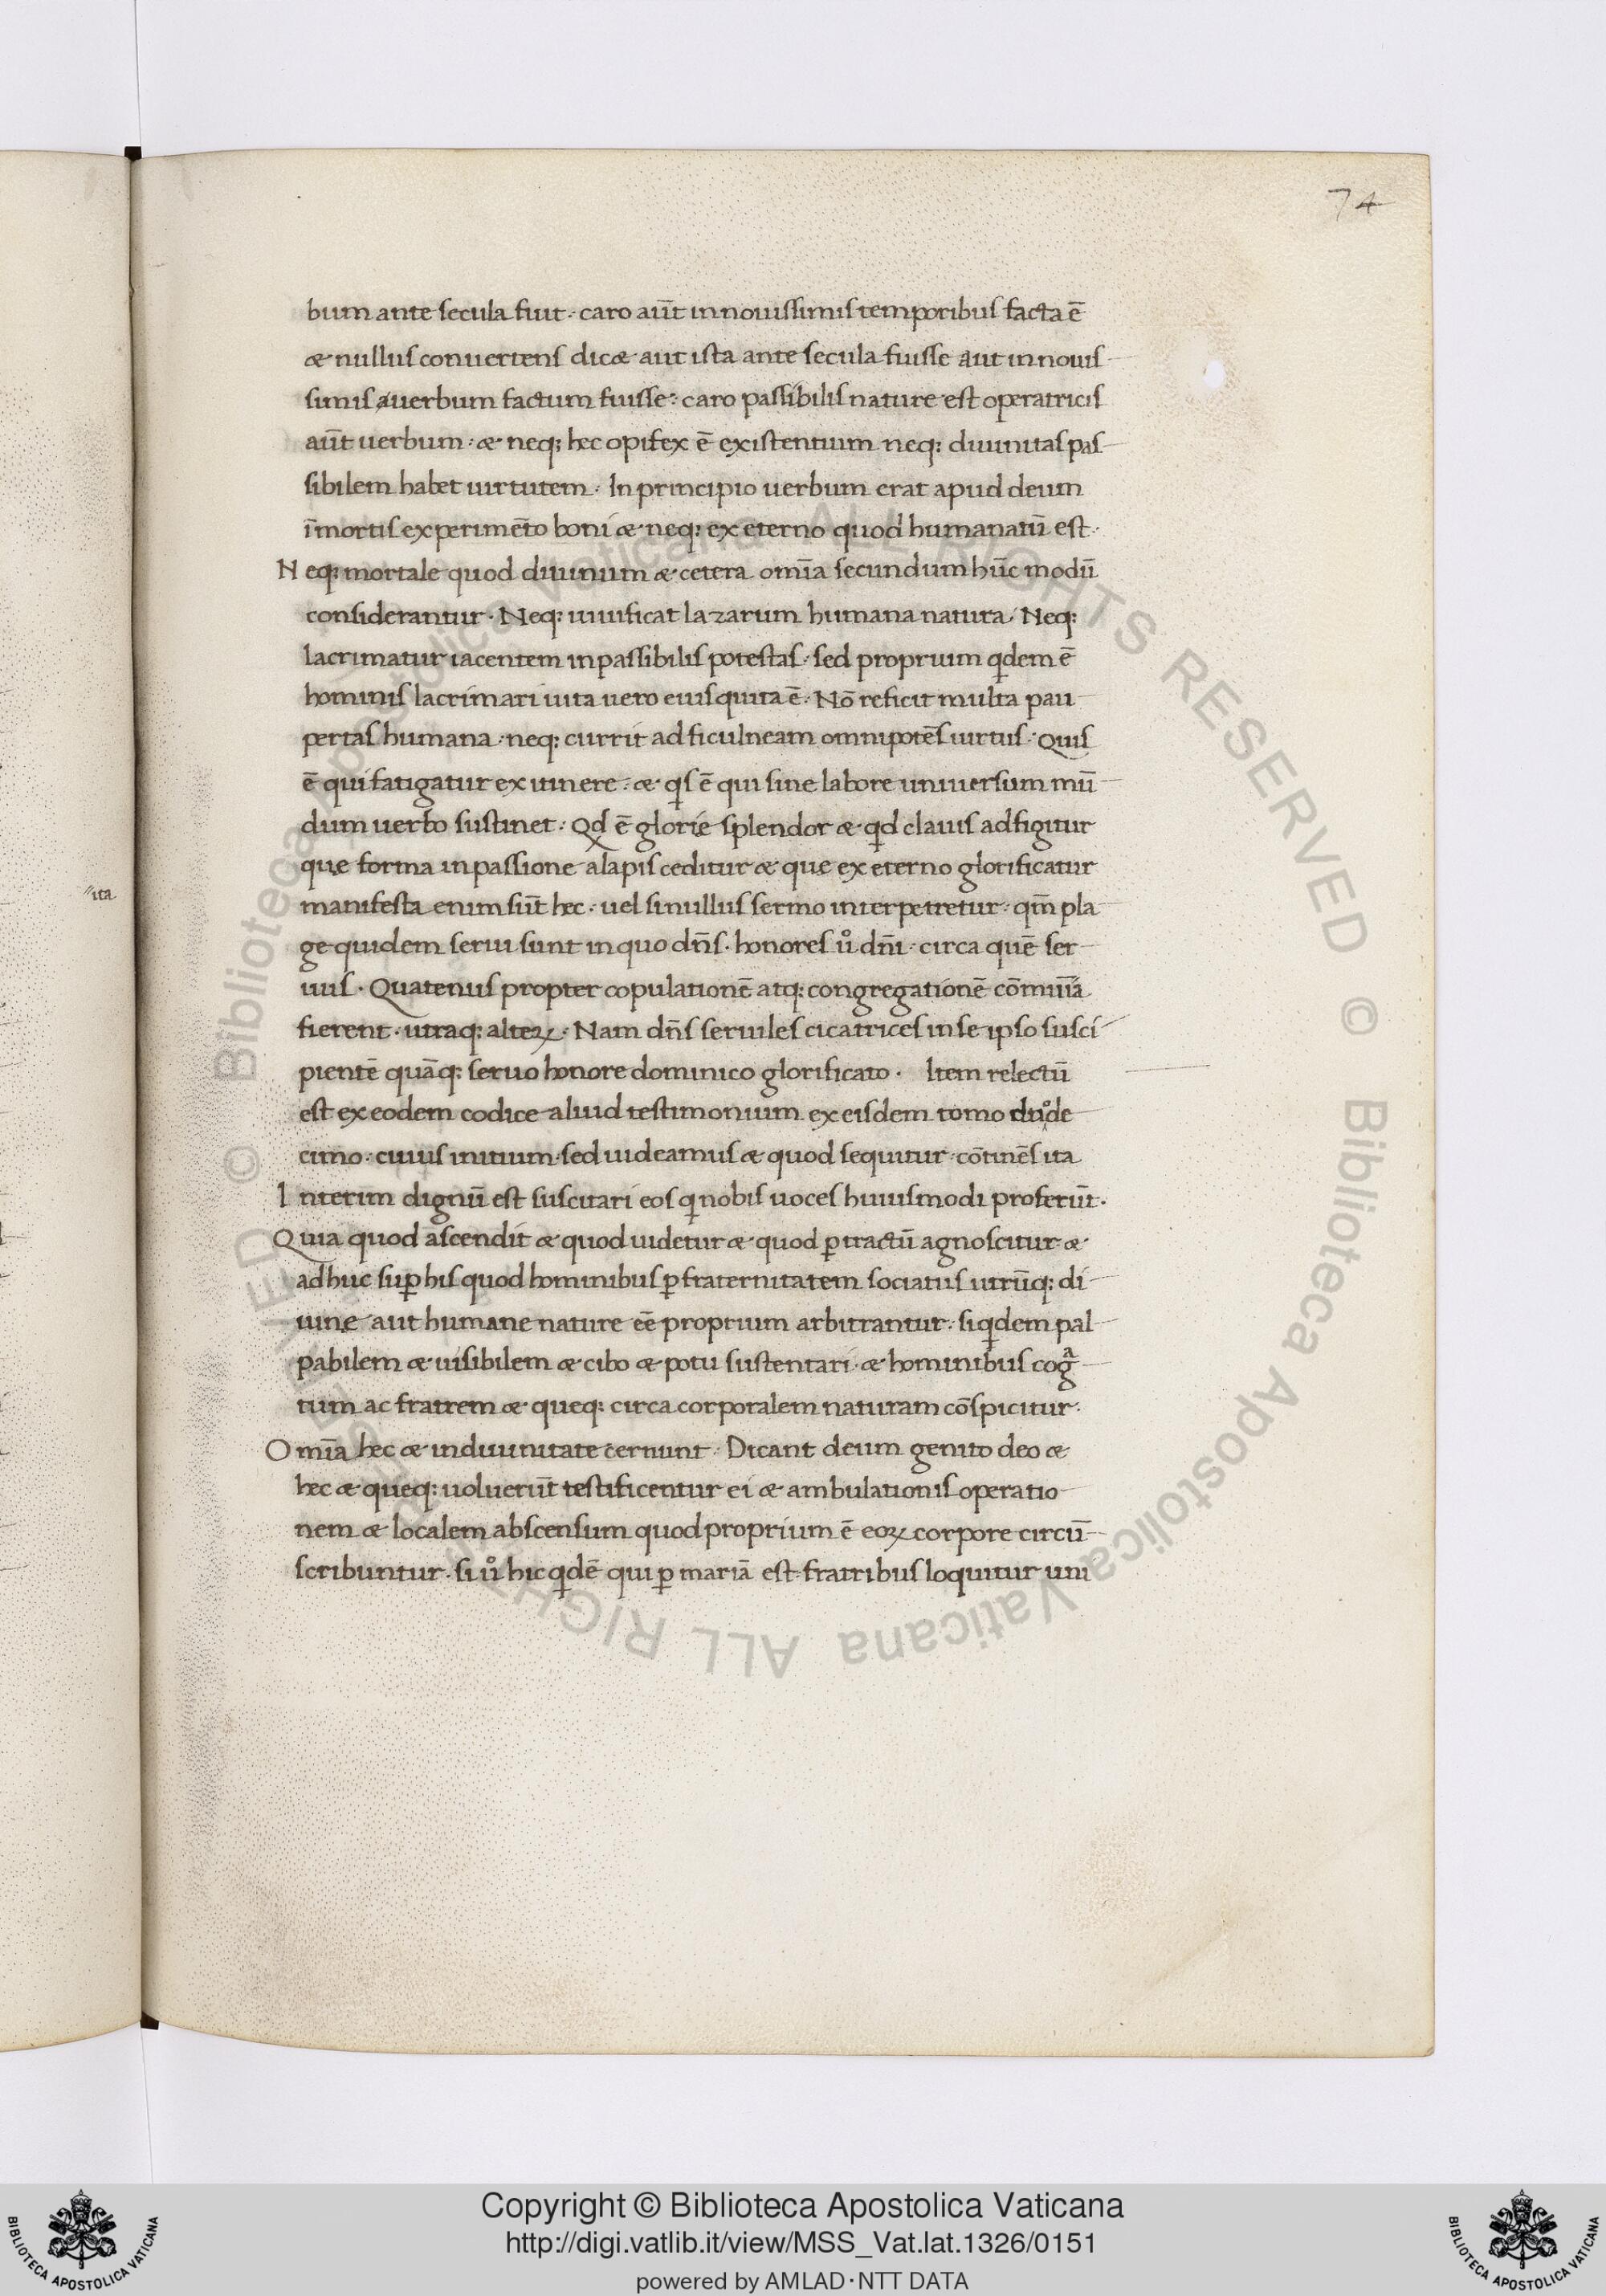 74
bum ante secula fuit · caro aut̄ in nouissimis temporibus facta ē
æ nullus conuertens dicæ aut ista ante secula fuisse aut in nouis
simis auerbum factum fuisse · caro passibilis nature est operatricis
aut̄ uerbum · æ neq; hec opifex ē existentium neq; diuinitas pas
sibilem habet uirtutem · In principio uerbum erat apud deum
ī mortis experimēto boni æ neq; ex eterno quod humanatū est ·
Neq; mortale quod diuinum æ cetera omīa secundum hūc modū
considerantur · Neq; uiuificat lazarum humana natura · Neq;
lacrimatur iacentem inpassibilis potestas · sed proprium qdem ē
hominis lacrimari uita uero eius qui uita ē · Nō reficit multa pau
pertas humana · neq; currit ad ficulneam omnipotēs uirtus · Quis
ē qui fatigatur ex itinere · æ qs ē qui sine labore uniuersum mū
dum uerbo sustinet · Qd ē glorie splendor æ qd clauis adfigitur
que forma in passione alapis ceditur æ que ex eterno glorificatur
manifesta enim sūt hec · uel si nullus sermo interpetretur · qm̄ pla
ita
ge quidem serui sunt in quo dn̄s · honores uͦ dn̄i · circa quē ser
uus · Quatenus propter copulationē atq; congregationē cōmunīa
fierent · utraq; alteꝝ · Nam dn̄s seruiles cicatrices in se ipso susci
pientē quāq; seruo honore dominico glorificato · Item relectū
est ex eodem codice aliud testimonium ex eisdem tomo duͦde
cimo · cuius initium · sed uideamus æ quod sequitur · cōtinēs ita
Interim dignū est suscitari eos q nobis uoces huiusmodi proferūt ·
Quia quod ascendit æ quod uidetur æ quod ꝑ tractū agnoscitur æ
adhuc suꝑ his quod hominibus ꝑ fraternitatem sociatus utrūq; di
uine aut humane nature eē proprium arbitrantur · siqdem pal
pabilem æ uisibilem æ cibo æ potu sustentari · æ hominibus cogͣ
tum ac fratrem æ queq; circa corporalem naturam cōspicitur ·
Omīa hec æ in diuinitate cernunt · Dicant deum genito deo æ
hec æ queq; uoluerūt testificentur ei æ ambulationis operatio
nem æ localem abscensum quod proprium ē eoꝝ corpore circū
scribuntur · si uͦ hic qdē qui ꝑ mariā est fratribus loquitur uni
Copyright © Biblioteca Apostolica Vaticana
http://digi.vatlib.it/view/MSS_Vat.lat.1326/0151
powered by AMLAD·NTT DATA
BIBLIOTECA APOSTOLICA VATICANA
BIBLIOTECA APOSTOLICA VATICANA
© Biblioteca Apostolica Vaticana ALL RIGHTS RESERVED © Biblioteca Apostolica Vaticana ALL RIGHTS RESERVED